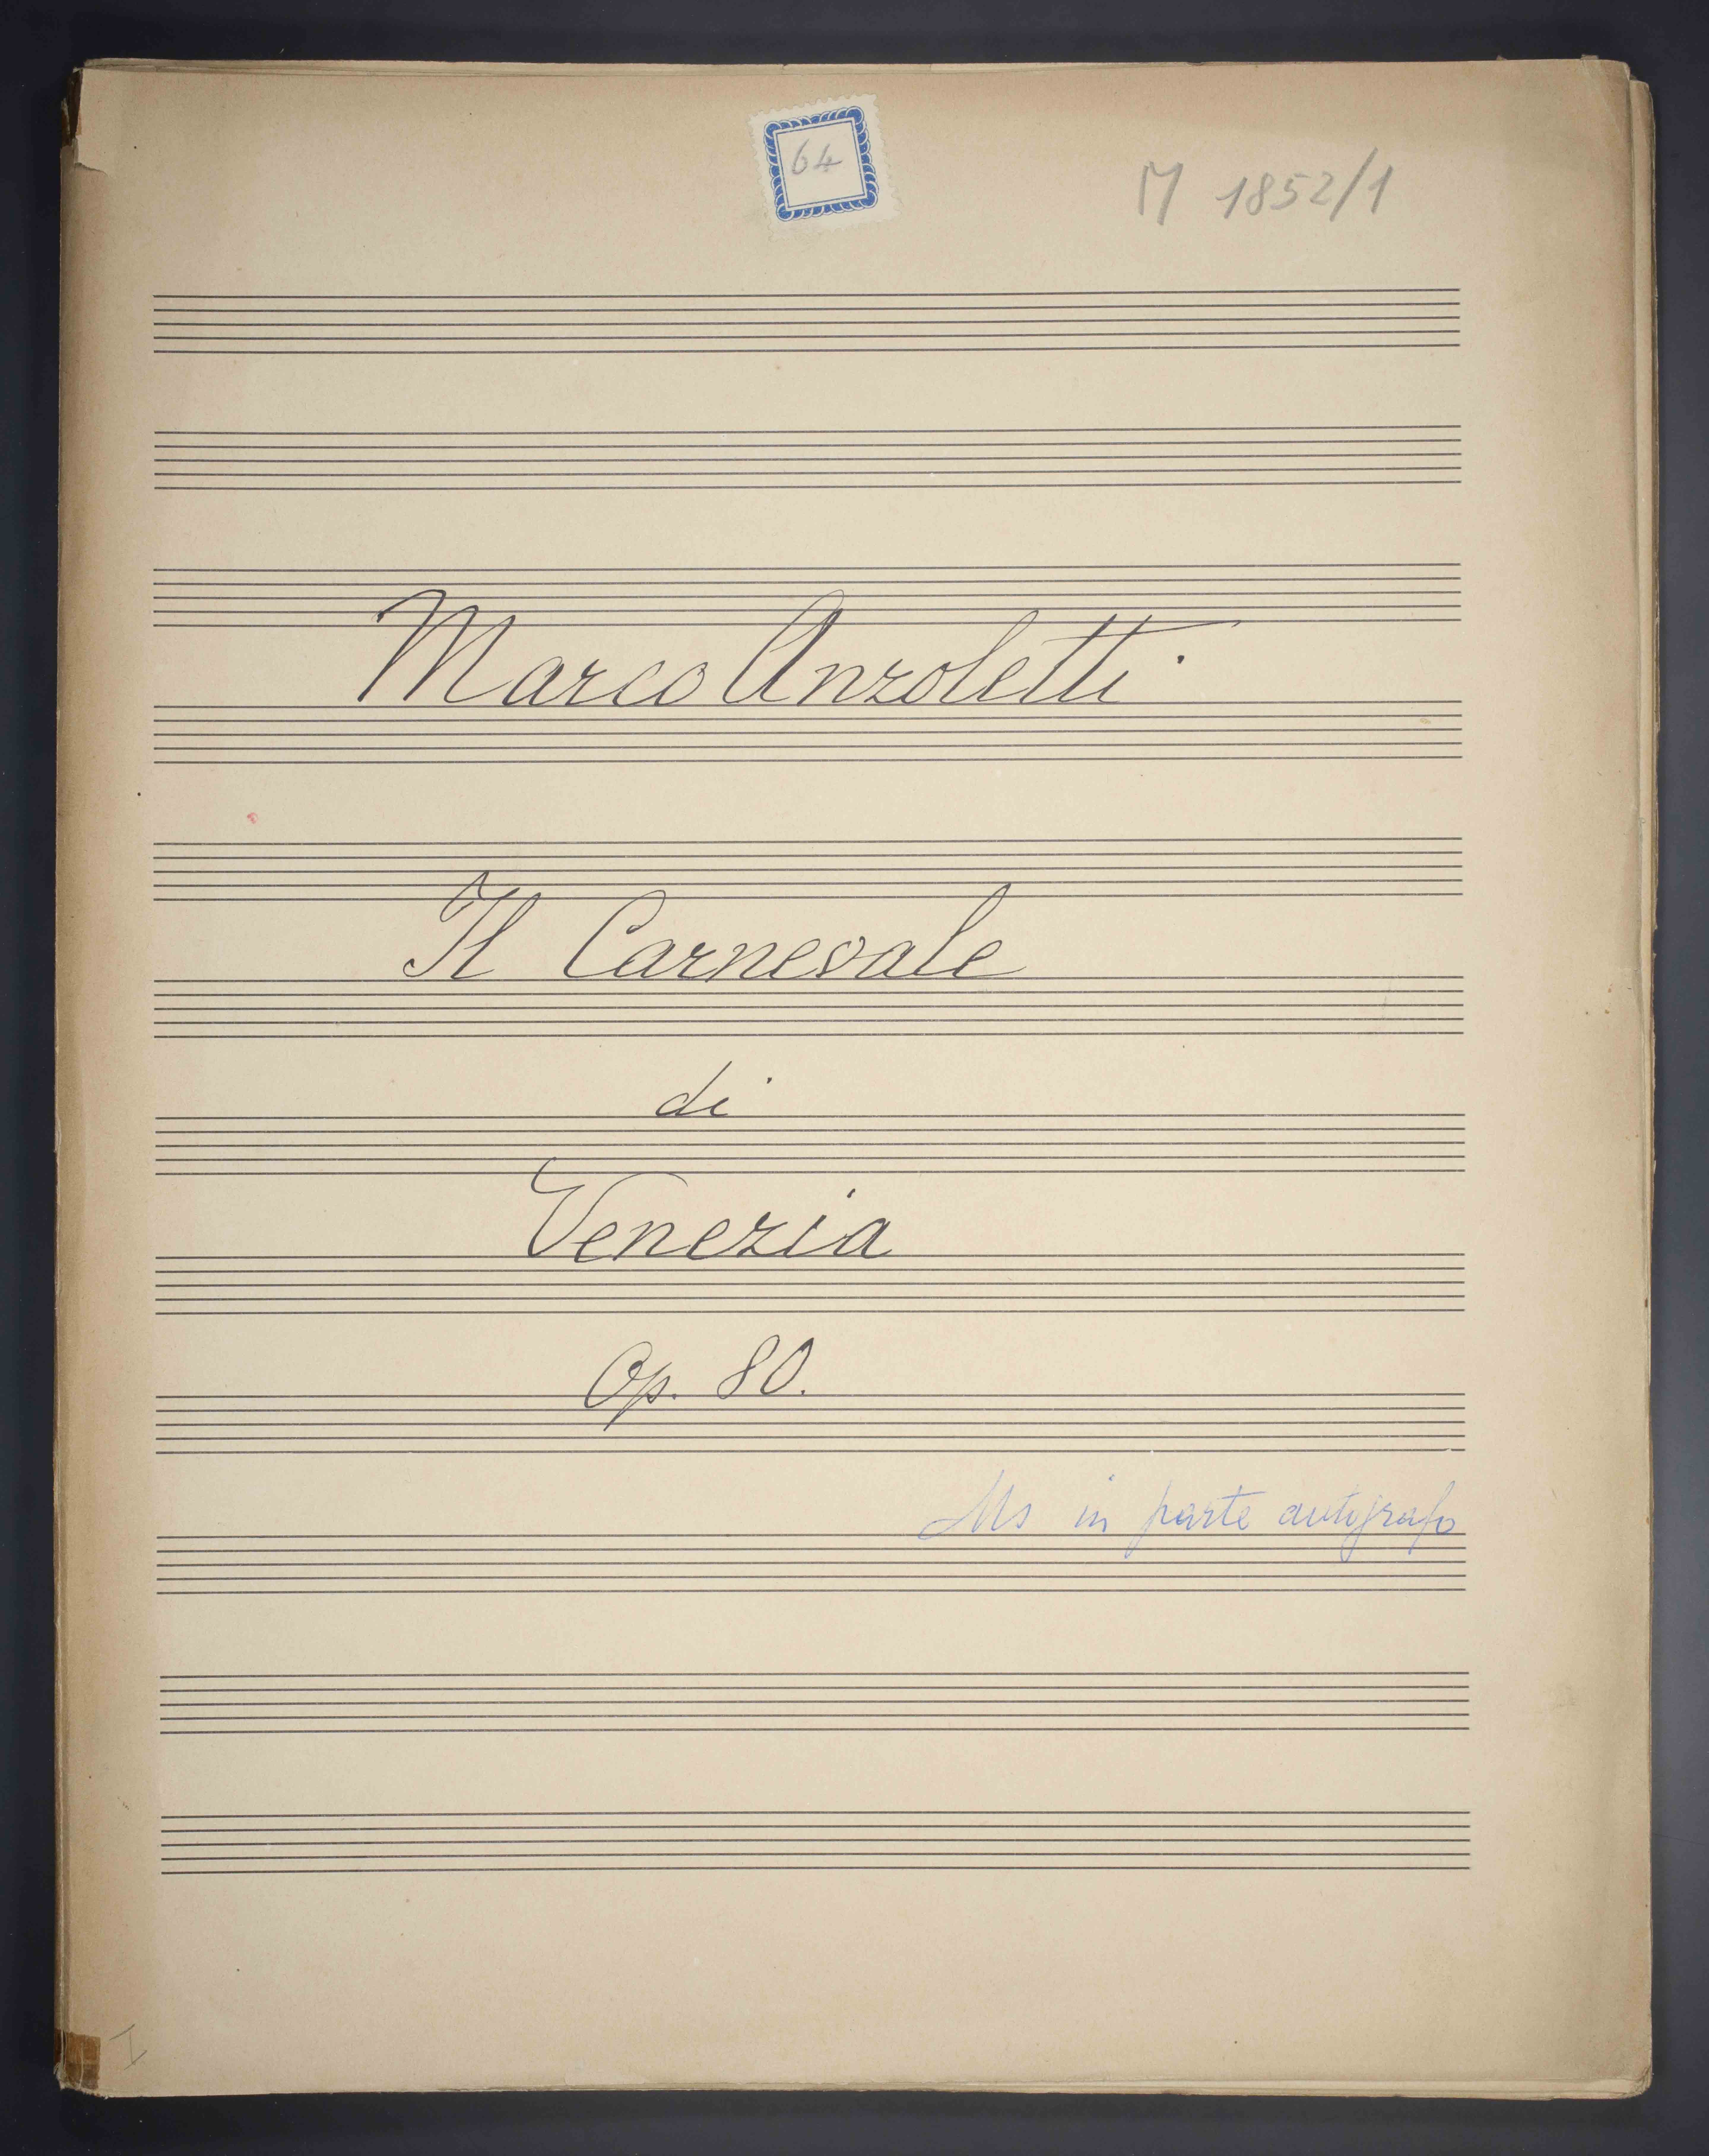 64
M 1852/1
Marco Anzoletti
Il Carnevale
di
Venezia
Op. 80.
Ms in parte autografo
I